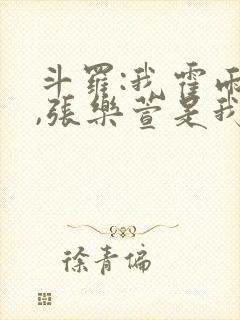 斗羅:我霍雨
,張樂萱是我
徐青偏